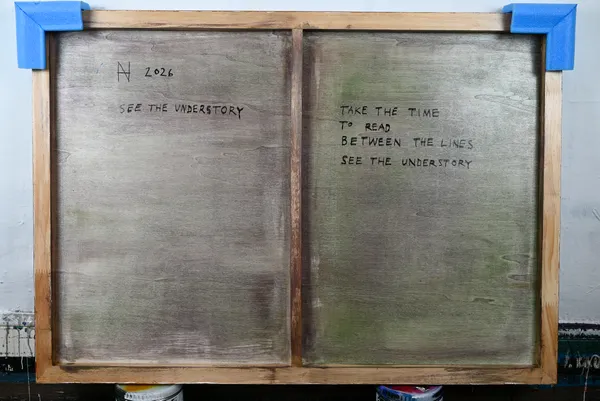 N 2026
SEE THE UNDERSTORY
TAKE THE TIME
TO READ
BETWEEN THE LINES
SEE THE UNDERSTORY